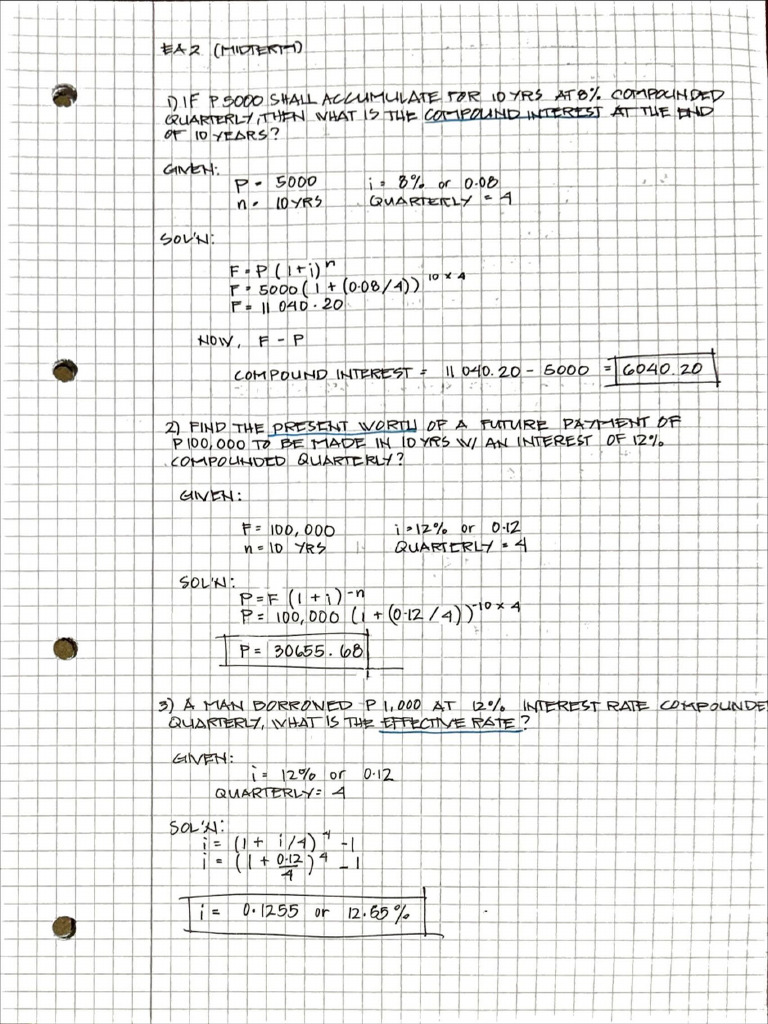 EA 2 (MIDTERM)
1) IF P 5000 SHALL ACCUMULATE FOR 10 YRS AT 8% COMPOUNDED
QUARTERLY, THEN WHAT IS THE COMPOUND INTEREST AT THE END
OF 10 YEARS?
GIVEN:
P = 5000 i = 8% or 0.08
n = 10 YRS QUARTERLY = 4
SOL'N:
F = P (1+i)^n
F = 5000 (1 + (0.08/4))^10 x 4
F = 11 040.20
NOW, F - P
COMPOUND INTEREST = 11 040.20 - 5000 = 6040.20
2) FIND THE PRESENT WORTH OF A FUTURE PAYMENT OF
P 100,000 TO BE MADE IN 10 YRS W/ AN INTEREST OF 12%
COMPOUNDED QUARTERLY?
GIVEN:
F = 100,000 i = 12% or 0.12
n = 10 YRS QUARTERLY = 4
SOL'N:
P = F (1 + i)^-n
P = 100,000 (1 + (0.12/4))^-10 x 4
P = 30655.68
3) A MAN BORROWED P 1,000 AT 12% INTEREST RATE COMPOUNDE
QUARTERLY, WHAT IS THE EFFECTIVE RATE?
GIVEN:
i = 12% or 0.12
QUARTERLY = 4
SOL'N:
i = (1 + i/4)^4 - 1
i = (1 + 0.12/4)^4 - 1
i = 0.1255 or 12.55%